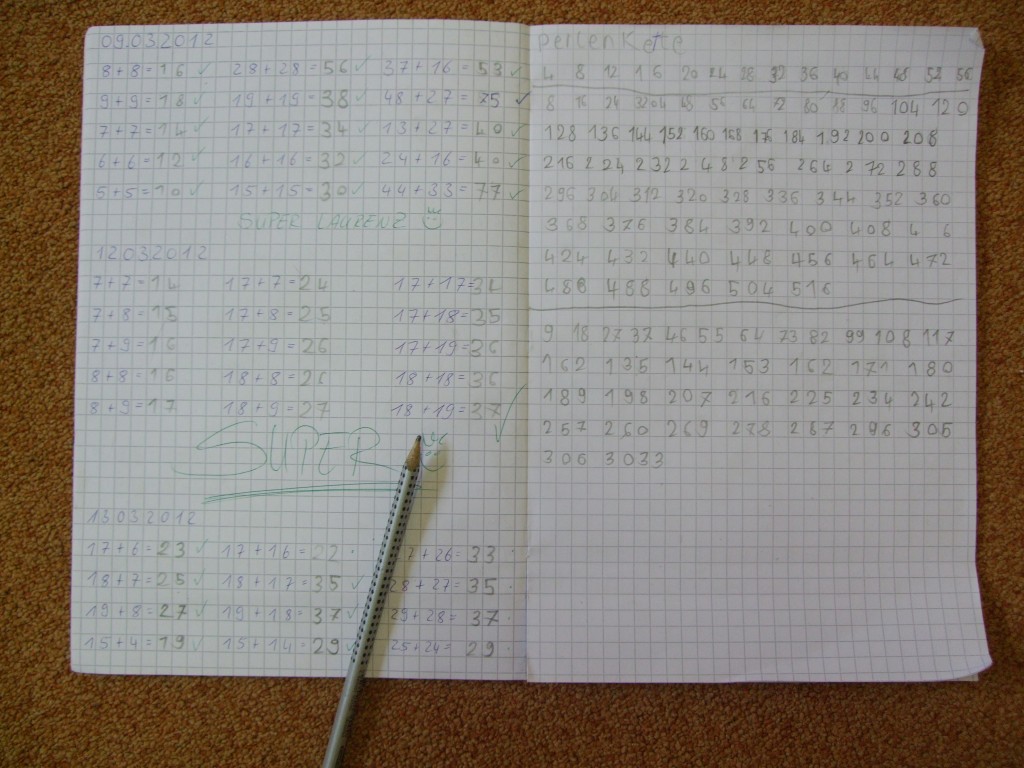 09.03.2012
8+8=16 ✓ 28+28=56 ✓ 37+16=53 ✓
9+9=18 ✓ 19+19=38 ✓ 48+27=75 ✓
7+7=14 ✓ 17+17=34 ✓ 13+27=40 ✓
6+6=12 ✓ 16+16=32 ✓ 24+16=40 ✓
5+5=10 ✓ 15+15=30 ✓ 44+33=77 ✓
SUPER LAURENZ
12032012
7+7=14 17+7=24 17+17=34
7+8=15 17+8=25 17+18=35
7+9=16 17+9=26 17+19=36
8+8=16 18+8=26 18+18=36
8+9=17 18+9=27 18+19=37 ✓
SUPER
13032012
17+6=23 ✓ 17+16=22 · +26=33 ·
18+7=25 ✓ 18+17=35 ✓ 28+27=35 ·
19+8=27 ✓ 19+18=37 ✓ 29+28=37 ·
15+4=19 ✓ 15+14=29 ✓ 25+24=29 ·
perlenkette
4 8 12 16 20 24 28 32 36 40 44 48 52 56
8 16 24 48 56 64 72 80 88 96 104 120
128 136 144 152 160 168 176 184 192 200 208
216 224 232 248 256 264 272 288
296 304 312 320 328 336 344 352 360
368 376 384 392 400 408 4 6
424 432 440 448 456 464 472
488 496 504 516
9 18 27 37 46 55 64 73 82 99 108 117
162 135 144 153 162 171 180
189 198 207 216 225 234 242
257 260 269 278 287 296 305
306 3033